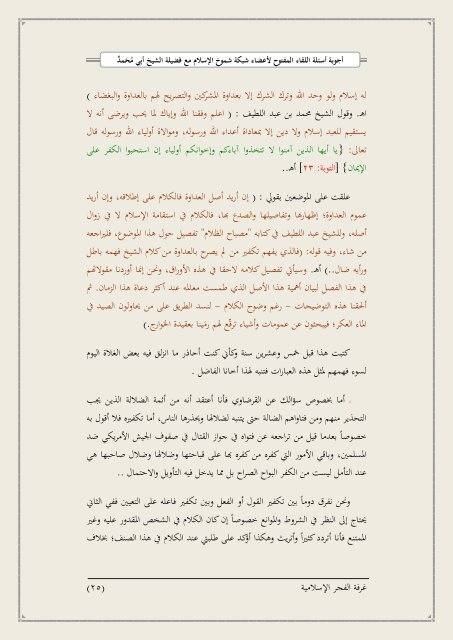 أجوبة أسئلة اللقاء المفتوح لأعضاء شبكة شموخ الإسلام مع فضيلة الشيخ أبي مُحَمدٍ
له إسلام ولو وحد الله وترك الشرك إلا بعداوة المشركين والتصريح لهم بالعداوة والبغضاء )
اهـ. وقول الشيخ محمد بن عبد اللطيف : ( اعلم وفقنا الله وإياك لما يحب ويرضى أنه لا
يستقيم للعبد إسلام ولا دين إلا بمعاداة أعداء الله ورسوله، وموالاة أولياء الله ورسوله قال
تعالى: {يا أيها الذين آمنوا لا تتخذوا آباءكم وإخوانكم أولياء إن استحبوا الكفر على
الإيمان} [التوبة: ٢٣] أهـ..
علقت على الموضعين بقولي : ( إن أريد أصل العداوة فالكلام على إطلاقه، وإن أريد
عموم العداوة؛ إظهارها وتفاصيلها والصدع بها، فالكلام في استقامة الإسلام لا في زوال
أصله، وللشيخ عبد اللطيف في كتابه "مصباح الظلام" تفصيل حول هذا الموضوع، فليراجعه
من شاء، وفيه قوله: (فالذي يفهم تكفير من لم يصرح بالعداوة من كلام الشيخ فهمه باطل
ورأيه ضال..) أهـ. وسيأتي تفصيل كلامه لاحقا في هذه الأوراق، ونحن إنما أوردنا مقولاتهم
في هذا الفصل لبيان أهمية هذا الأصل الذي طمست معالمه عند أكثر دعاة هذا الزمان. ثم
ألحقنا هذه التوضيحات – رغم وضوح الكلام – لنسد الطريق على من يحاولون الصيد في
الماء العكر؛ فيبحثون عن عمومات وأشياء ترقّع لهم رمينا بعقيدة الخوارج.)
كتبت هذا قبل خمس وعشرين سنة وكأني كنت أحاذر ما انزلق فيه بعض الغلاة اليوم
لسوء فهمهم لمثل هذه العبارات فتنبه لهذا أخانا الفاضل .
. أما بخصوص سؤالك عن القرضاوي فأنا أعتقد أنه من أئمة الضلالة الذين يجب
التحذير منهم ومن فتاواهم الضالة حتى يتنبه لضلالها ويحذرها الناس، أما تكفيره فلا أقول به
خصوصاً بعدما قيل من تراجعه عن فتواه في جواز القتال في صفوف الجيش الأمريكي ضد
المسلمين، وباقي الأمور التي كفره من كفره بها على قباحتها وضلالها وضلال صاحبها هي
عند التأمل ليست من الكفر البواح الصراح بل مما يدخل فيه التأويل والاحتمال ..
ونحن نفرق دوماً بين تكفير القول أو الفعل وبين تكفير فاعله على التعيين ففي الثاني
يحتاج إلى النظر في الشروط والموانع خصوصاً إن كان الكلام في الشخص المقدور عليه وغير
الممتنع فأنا أتردد كثيراً وأتريث وهكذا أؤكد على طلبتي عند الكلام في هذا الصنف؛ بخلاف
غرفة الفجر الإسلامية
(٢٥)